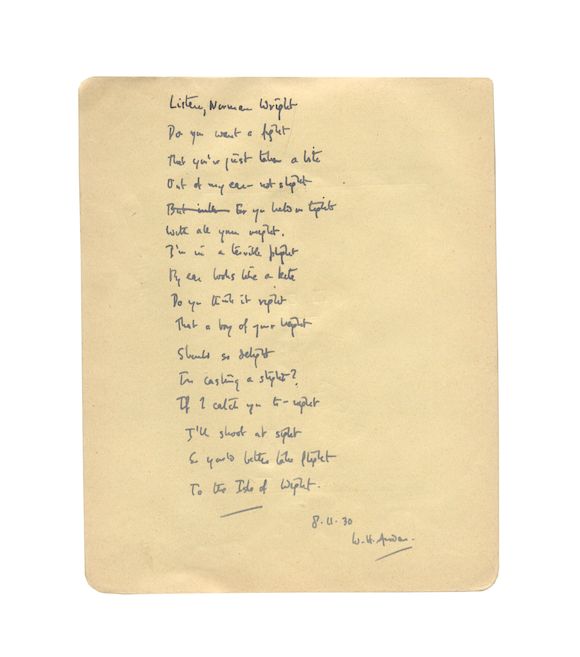 Listen, Norman Wright
Do you want a fight
That you've just taken a bite
Out of my ear - not slight
For you held on tight
With all your might.
I'm in a terrible plight
My ear looks like a kite
Do you think it right
That a boy of your height
Should so delight
In casting a slight?
If I catch you to-night
I'll shoot at sight
So you'd better take flight
To the Isle of Wight.
8.11.30
W.H. Auden.